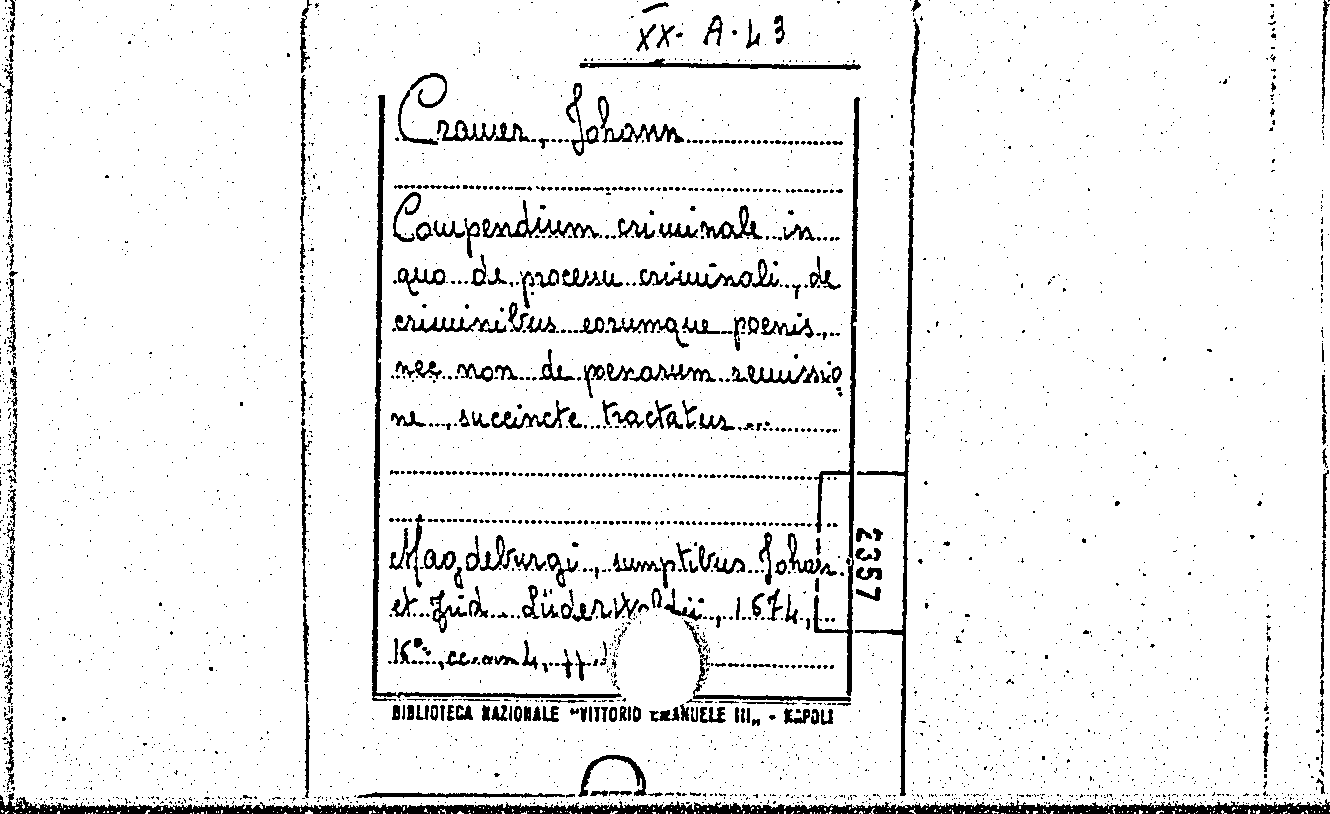 XX. A. 43
Cramer, Johann
Compendium criminale in
quo de processu criminali, de
criminibus eorumque poenis,
nec non de poenarum remissio
ne, succincte tractatus ...
Magdeburgi, sumptibus Johan.
et Frid. Lüderwaldii, 1674,
16°, pp.
2357
BIBLIOTECA NAZIONALE "VITTORIO EMANUELE III„ - NAPOLI